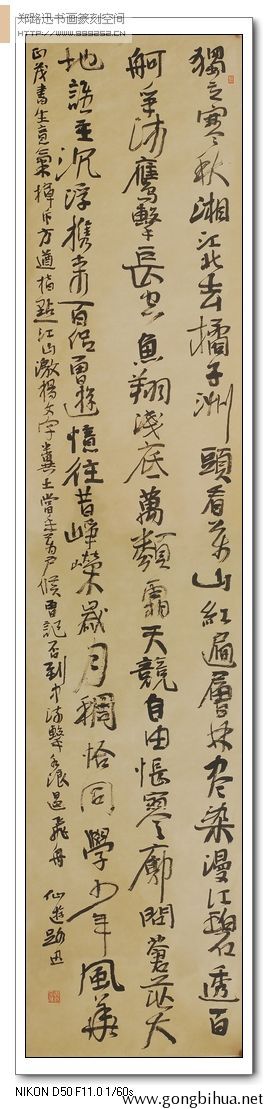 郑路迅书画篆刻空间
獨立寒秋湘江北去橘子洲頭看万山紅遍層林尽染漫江碧透百
舸爭流鷹擊長空魚翔淺底萬類霜天競自由悵寥廓問蒼茫大
地誰主沉浮携來百侶曾遊憶往昔崢嶸歲月稠恰同學少年風華
正茂書生意氣揮斥方遒指點江山激揚文字糞土當年萬戶侯曾記否到中流擊水浪遏飛舟 仙遊路迅
NIKON D50 F11.0 1/60s
www.gongbihua.net